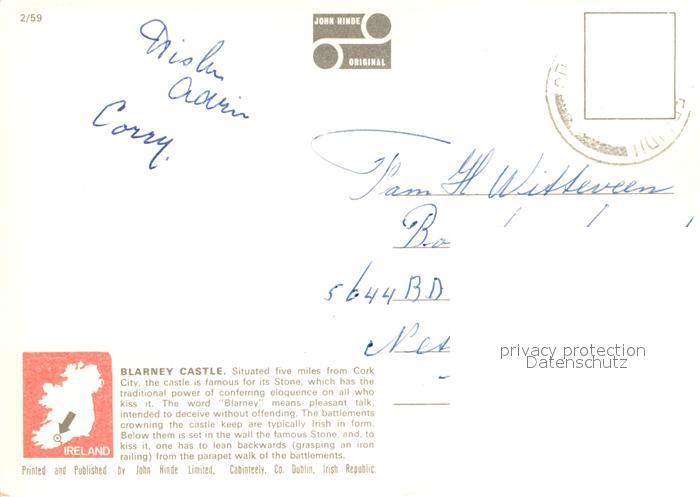 2/59
JOHN HINDE
ORIGINAL
Corry.
Fam H Witteveen
Bo
5644 BD
Net
privacy protection
Datenschutz
BLARNEY CASTLE. Situated five miles from Cork
City, the castle is famous for its Stone, which has the
traditional power of conferring eloquence on all who
kiss it. The word "Blarney" means pleasant talk,
intended to deceive without offending. The battlements
crowning the castle keep are typically Irish in form.
Below them is set in the wall the famous Stone, and, to
kiss it, one has to lean backwards (grasping an iron
railing) from the parapet walk of the battlements.
IRELAND
Printed and Published by John Hinde Limited, Cabinteely, Co. Dublin, Irish Republic.